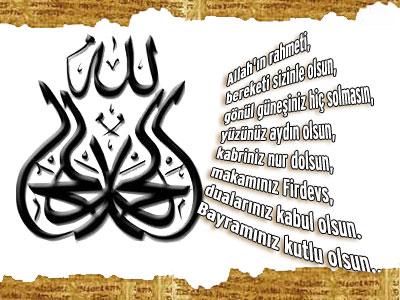 الحمد لله
Allah'ın rahmeti,
bereketi sizinle olsun,
gönül güneşiniz hiç solmasın,
yüzünüz aydın olsun,
kabriniz nur dolsun,
makamınız Firdevs,
dualarınız kabul olsun.
Bayramınız kutlu olsun..